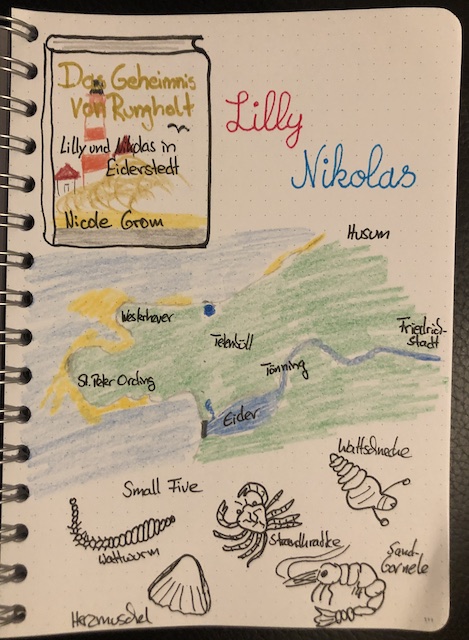 Das Geheimnis
Von Rungholt
Lilly und Nikolas in
Eiderstedt
Nicole Grom
Lilly
Nikolas
Husum
Westerhever
Friedrich-
stadt
Tetenbüll
Tönning
St. Peter Ording
Eider
Wattschnecke
Small Five
Strandkrabbe
Wattwurm
Sand-
Garnele
Herzmuschel